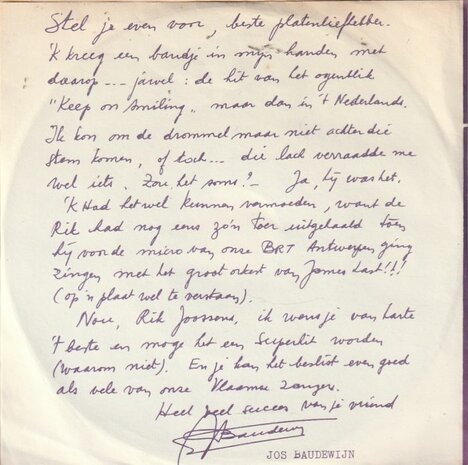 Stel je even voor, beste platenliefhebber.
'K kreeg een bandje in mijn handen met
daarop --- jawel: de hit van het ogenblik
"Keep on smiling" maar dan in 't Nederlands.
Ik kon om de drommel maar niet achter die
stem komen, of toch... die lach verraadde me
wel iets. Zou het soms?- Ja, hij was het.
'K Had het wel kunnen vermoeden, want de
Rik had nog eens zo'n toer uitgehaald toen
hij voor de micro van onze BRT Antwerpen ging
zingen met het groot orkest van James Last!!!
(op 'n plaat wel te verstaan).
Nou, Rik Joossens, ik wens je van harte
't beste en moge het een superhit worden
(waarom niet). En je kan het beslist even goed
als vele van onze Vlaamse zangers.
Heel veel succes van je vriend
J Baudewijn
JOS BAUDEWIJN